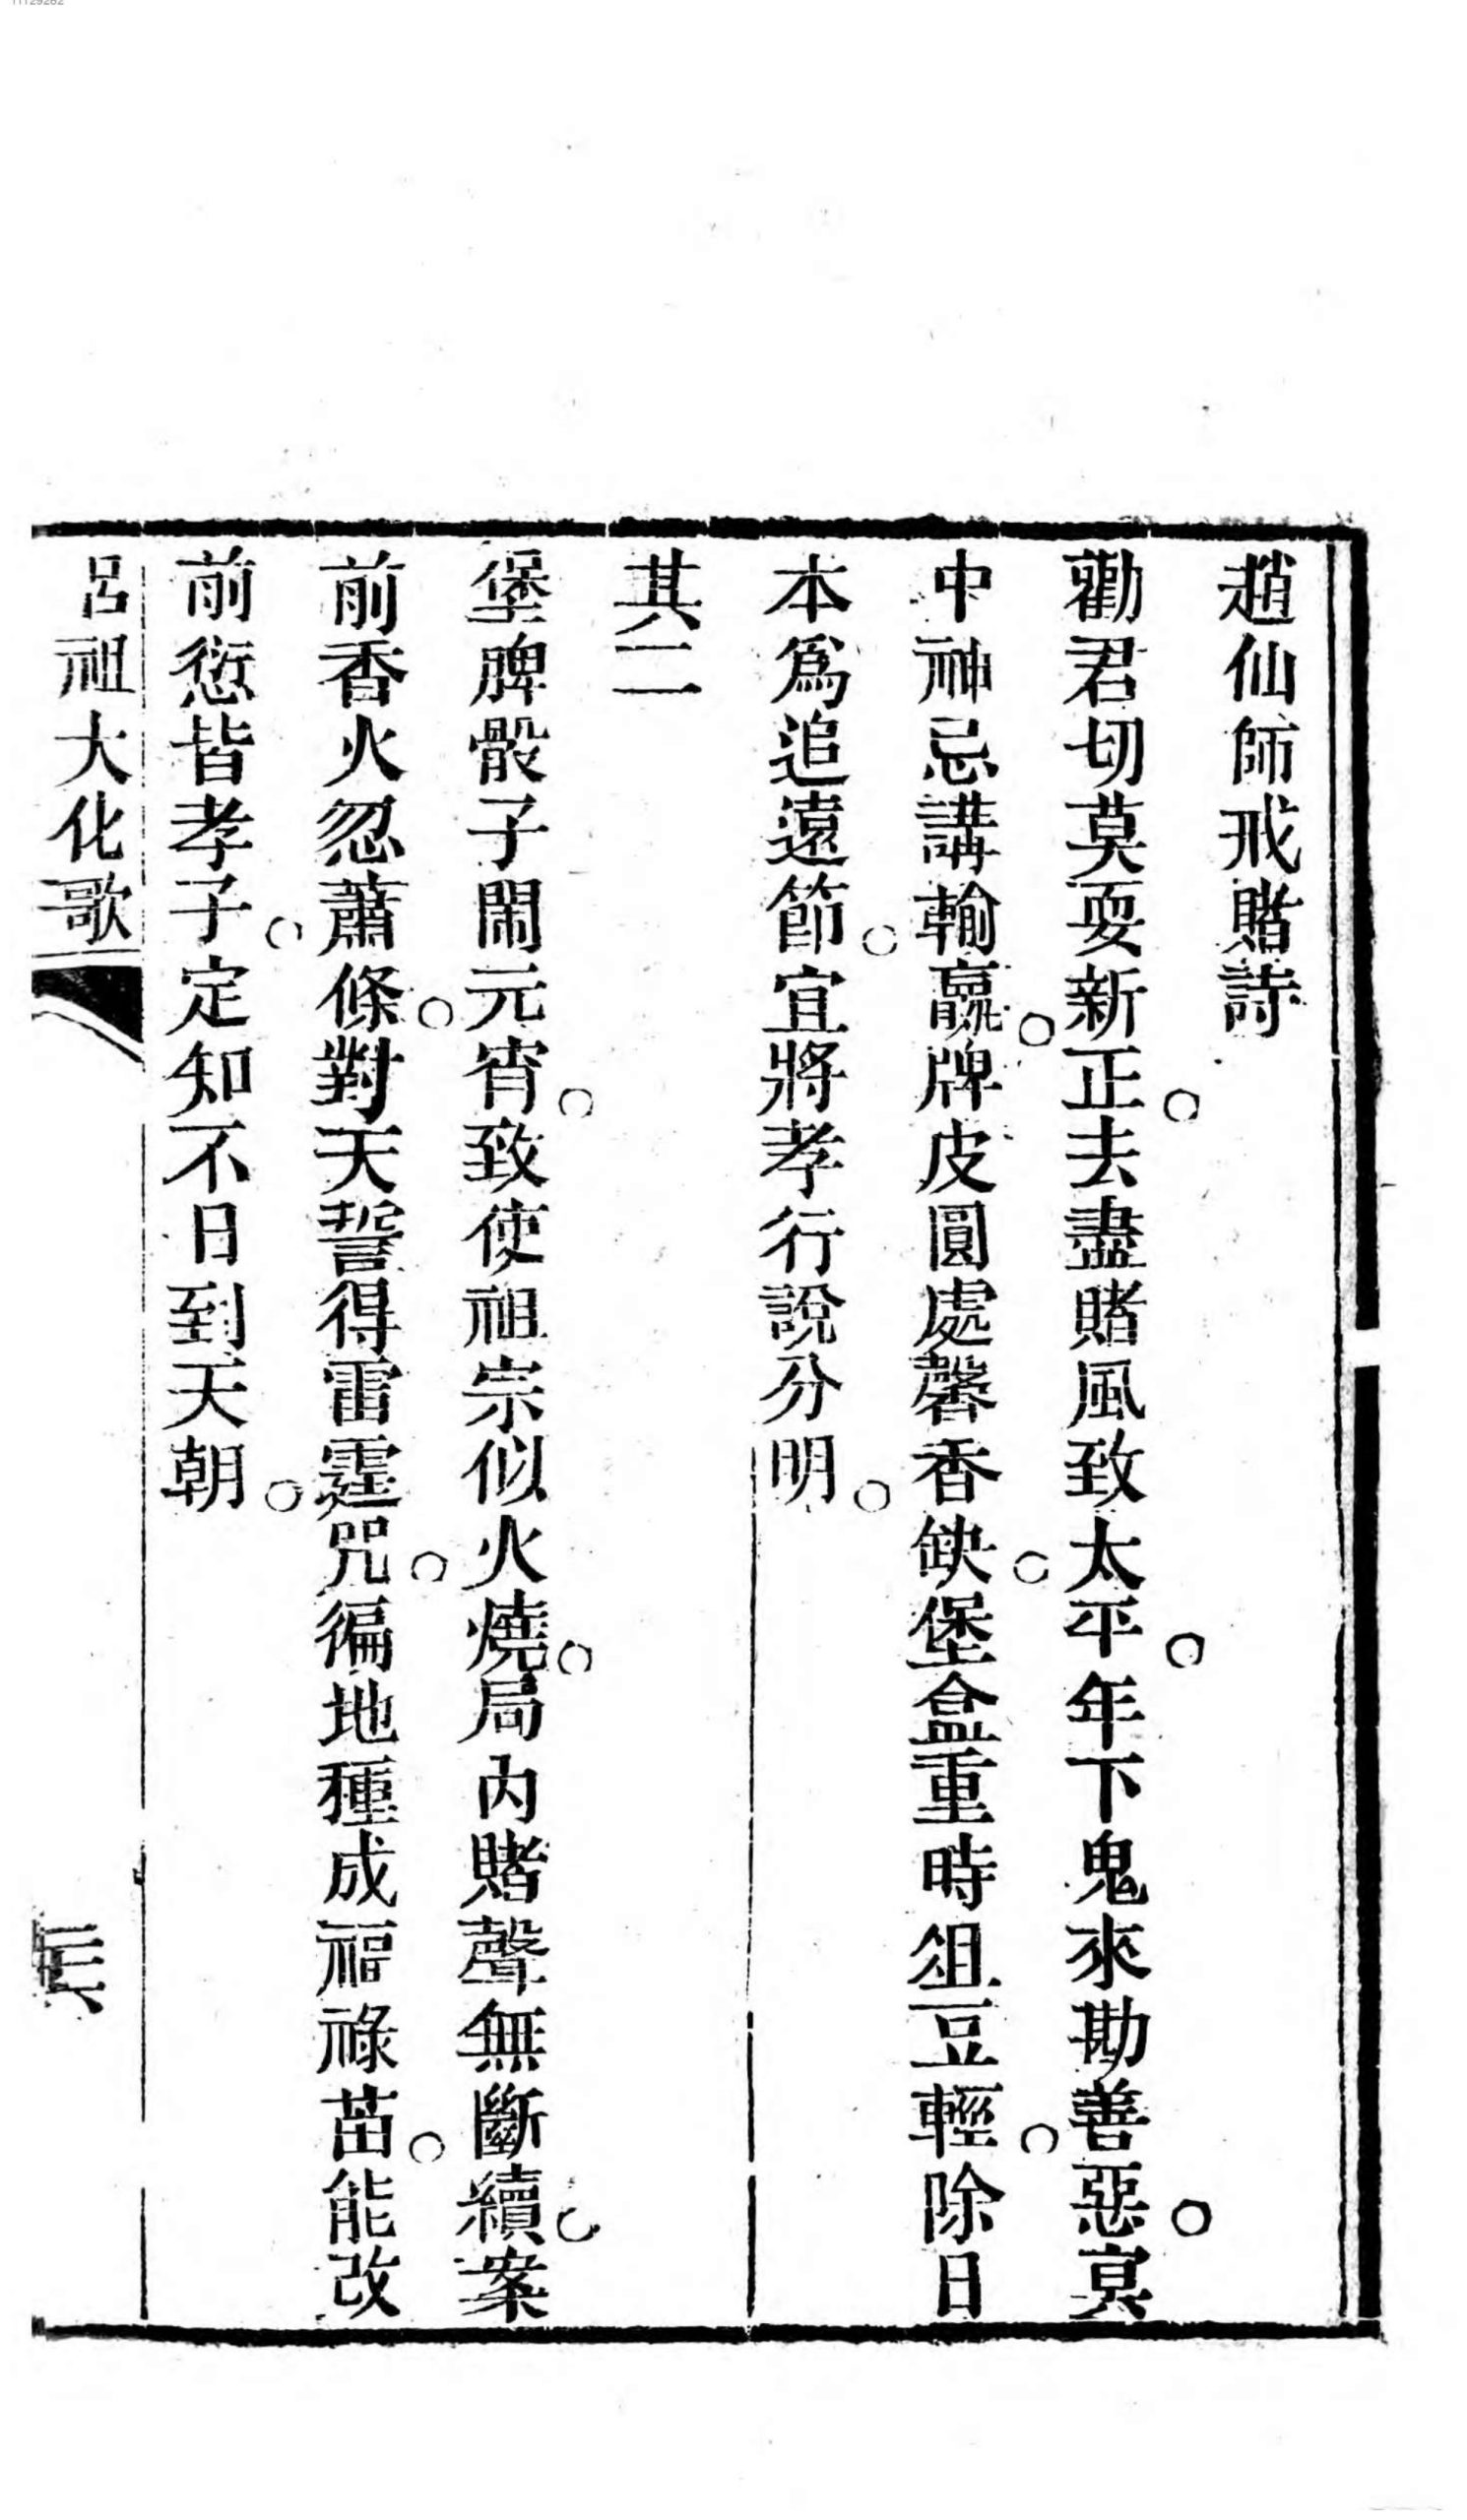 趙仙師戒賭詩
勸君切莫耍新正。去盡賭風致太平。年下鬼來勘善惡。冥
中神忌講輸贏。牌皮圓處馨香缺。堡盒重時俎豆輕。除日
本爲追遠節。宜將孝行說分明。
其二
堡脾骰子鬧元宵。致使祖宗似火燒。局內賭聲無斷續。案
前香火忽蕭條。對天誓得雷霆咒。徧地種成福祿苗。能改
前愆皆孝子。定知不日到天朝。
呂祖大化歌